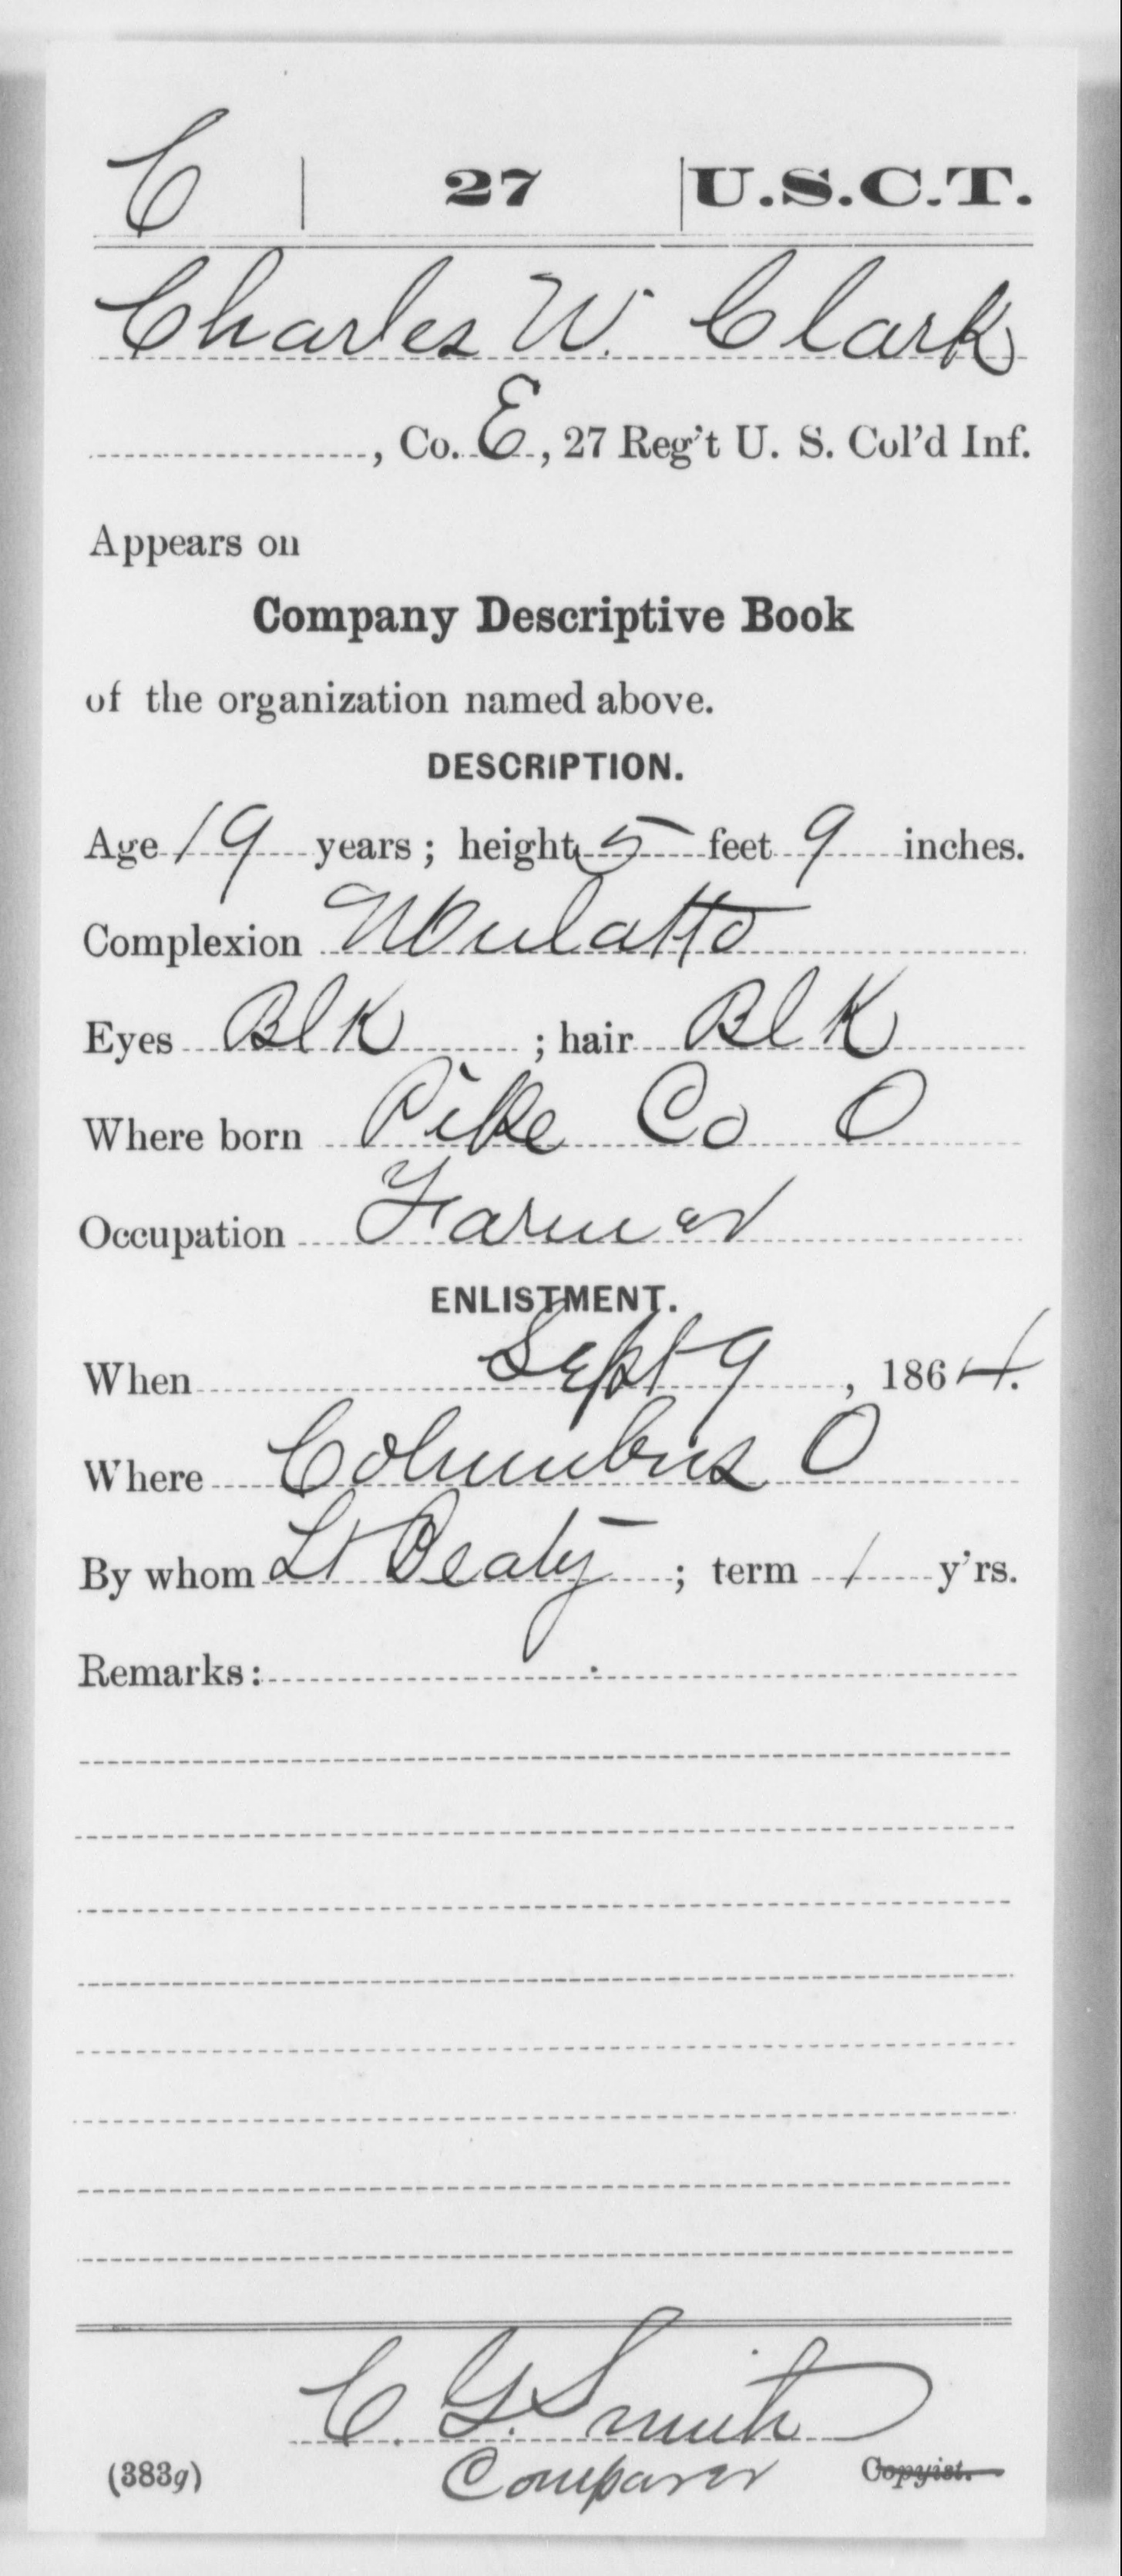 C 27 U.S.C.T.
Charles W. Clark
, Co. E, 27 Reg't U. S. Col'd Inf.
Appears on
Company Descriptive Book
of the organization named above.
DESCRIPTION.
Age 19 years; height 5 feet 9 inches.
Complexion Mulatto
Eyes Blk ; hair Blk
Where born Pike Co O
Occupation Farmer
ENLISTMENT.
When Sept 9, 1864.
Where Columbus O
By whom Lt Bealy ; term 1 y'rs.
Remarks:
C. G. Smith
(383g) Comparer Copyist.